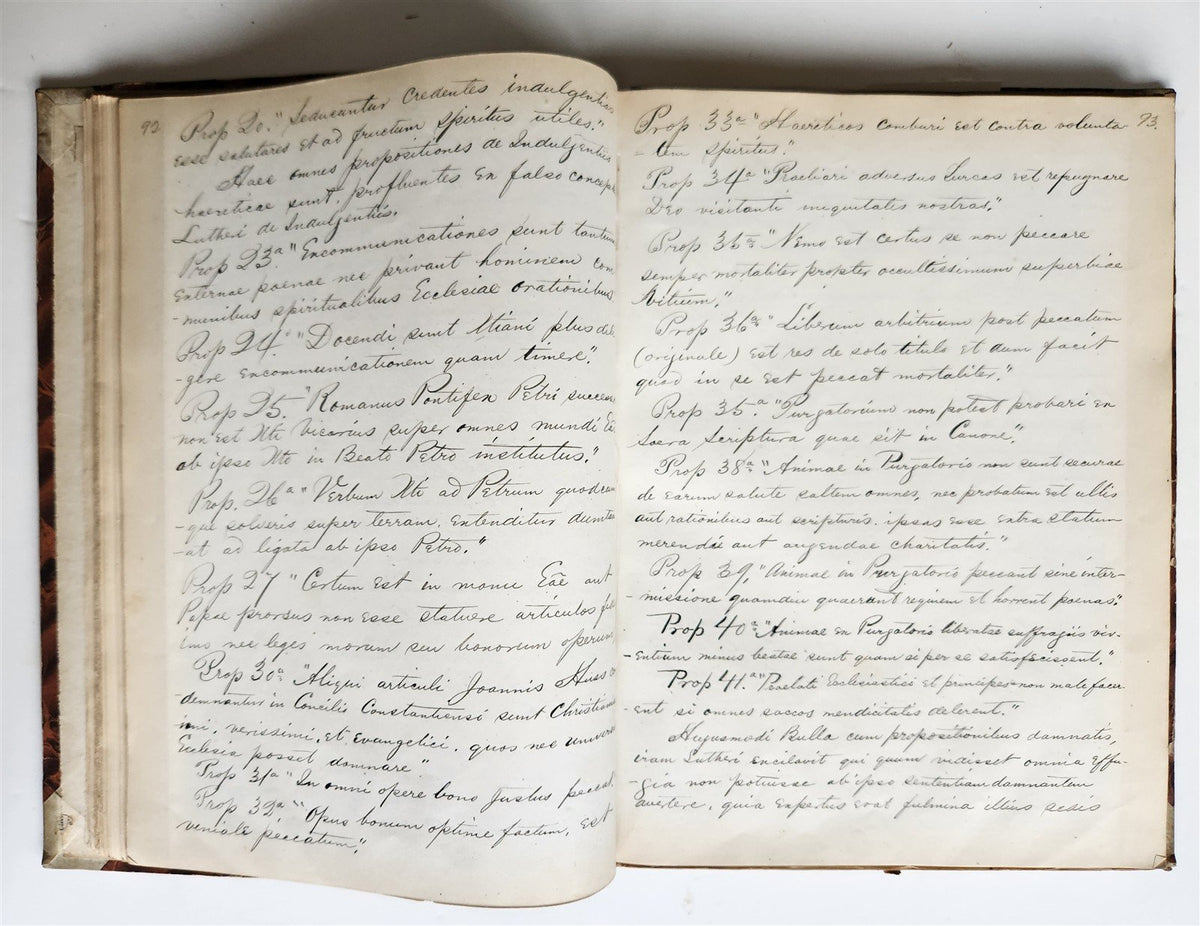 92
Prop 20. "Seducuntur credentes indulgentias
esse salutares et ad fructum spiritus utiles."
Haec omnes propositiones de Indulgentiis
haereticae sunt, profluentes en falso concep
Lutheri de Indulgentiis.
Prop 23a "Encommunicationes sunt tantum
enternae poenae nec privant hominem com
-munibus spiritualibus Ecclesiae orationibus
Prop 24a "Docendi sunt Xtiani plus dili
-gere encommunicationem quam timere".
Prop 25. "Romanus Pontifen Petri succes
non est Xti Vicarius super omnes mundi
ab ipso Xto in Beato Petro institutus."
Prop. 26a "Verbum Xti ad Petrum quodcum
-que solveris super terram, entenditur dumtax
-at ad ligata ab ipso Petro."
Prop 27 "Certum est in manu Eãe aut
Papae prorsus non esse statuere articulos fid
imo nec leges morum seu bonorum operum
Prop 30a "Aliqui articuli Joannis Huss
demnantur in Concilis Constantiensi sunt Christian
imi, verissimi, et Evangelici, quos nec univers
Ecclesia posset damnare"
Prop 31a "In omni opere bono Justus peccat.
Prop 32a "Opus bonum optime factum, est
veniale peccatum".
93.
Prop 33a "Haereticos comburi est contra volunta-
-tem spiritus."
Prop 34a "Praeliari adversus Turcas est repugnare
Deo visitanti iniquitatis nostras."
Prop 35a "Nemo est certus se non peccare
semper mortaliter propter occultissimum superbiae
vitium."
Prop 36a "Liberum arbitrium post peccatum
(originale) est res de solo titulo et dum facit
quod in se est peccat mortaliter."
Prop 35.a "Purgatorium non potest probari en
Sacra Scriptura quae sit in Canone".
Prop 38a "Animae in Purgatorio non sunt securas
de earum salute saltem omnes, nec probatum est ullis
aut rationibus aut scripturis, ipsas esse entra statum
merendi aut augendae charitatis."
Prop 39, "Animae in Purgatorio peccant sine inter-
-missione quamdiu quaerunt requiem et horrent poenas".
Prop 40a "Animae en Purgatorio liberatae suffragiis viv-
-entium minus beatae sunt quam si per se satisfecissent."
Prop 41.a "Pevelati Ecclesiastici et principes non male facer-
-ent si omnes saccos mendicitatis delerent."
Hujusmodi Bulla cum propositionibus damnatis,
iram Lutheri encitavit qui quum vidisset omnia effu-
-gia non potuisse ab ipso sententiam damnantem
avertere, quia expertus erat fulmina illius sedis